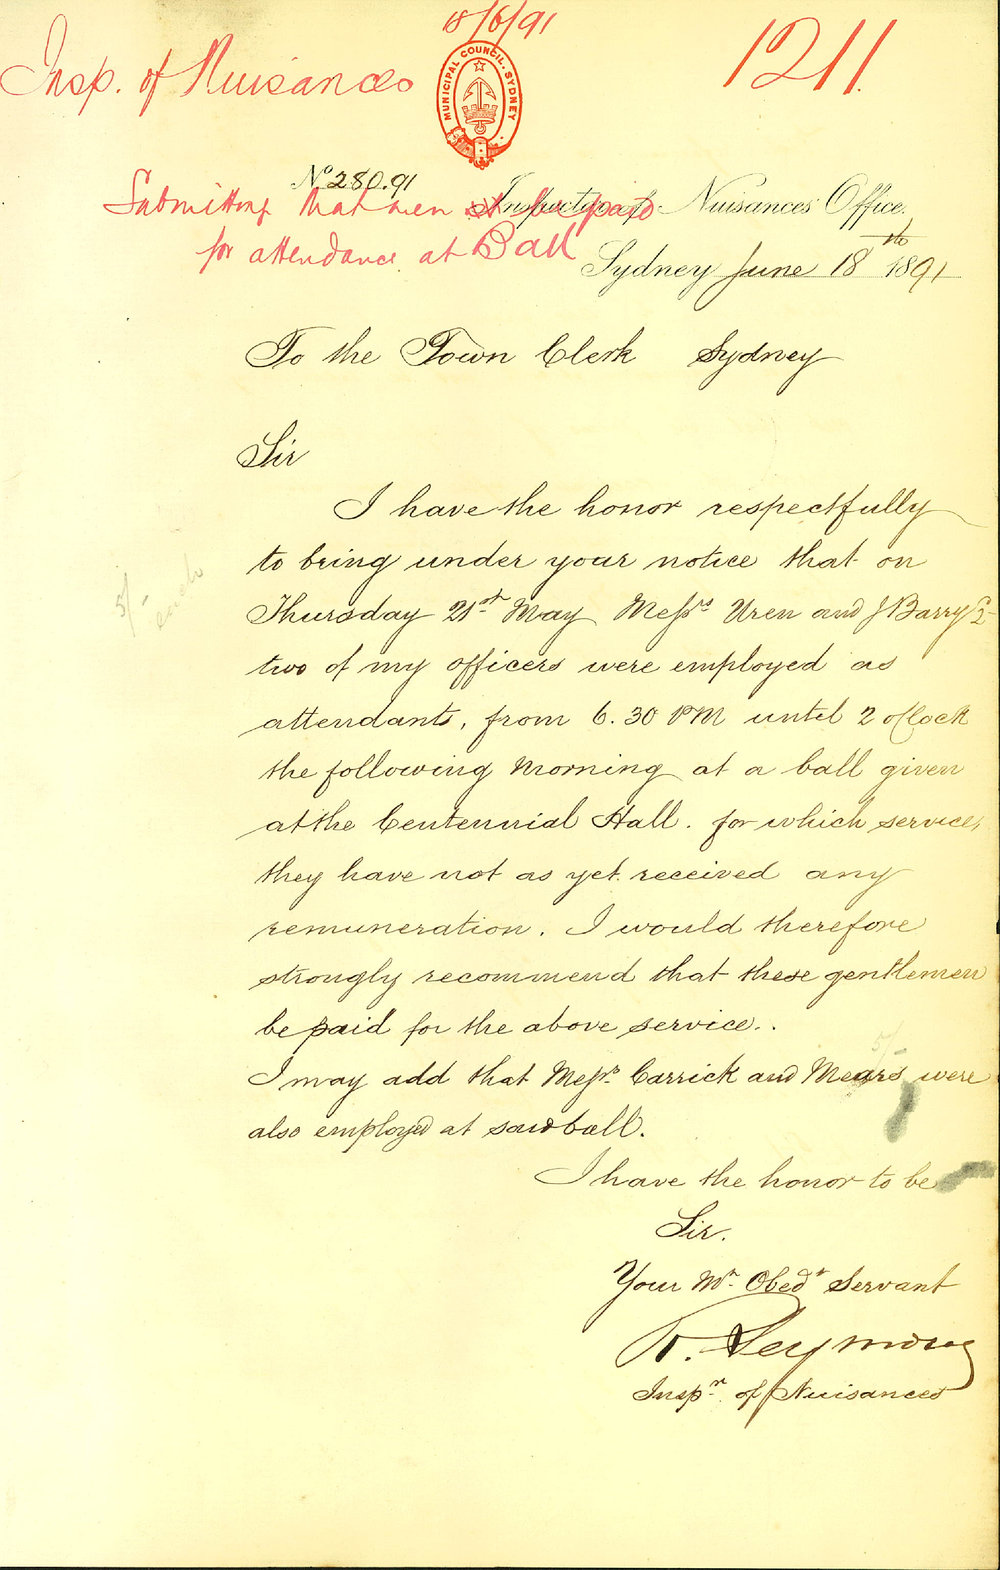 18/6/91
Insp. of Nuisances
MUNICIPAL COUNCIL. SYDNEY
1211.
No 280.91
Submitting that men be paid
for attendance at Ball
Inspector of Nuisances Office,
Sydney June 18th 1891
To the Town Clerk Sydney
Sir
I have the honor respectfully
to bring under your notice that on
5/-
each
Thursday 21st May Messrs Uren and J Barry
two of my officers were employed as
attendants, from 6.30 PM until 2 oClock
the following Morning at a ball given
at the Centennial Hall. for which services,
they have not as yet received any
remuneration. I would therefore
strongly recommend that these gentlemen
be paid for the above service..
5/-
I may add that Messrs. Carrick and Mears were
also employed at said ball.
I have the honor to be
Sir.
Your Mt. Obedt Servant
R. Seymour
Inspr. of Nuisances